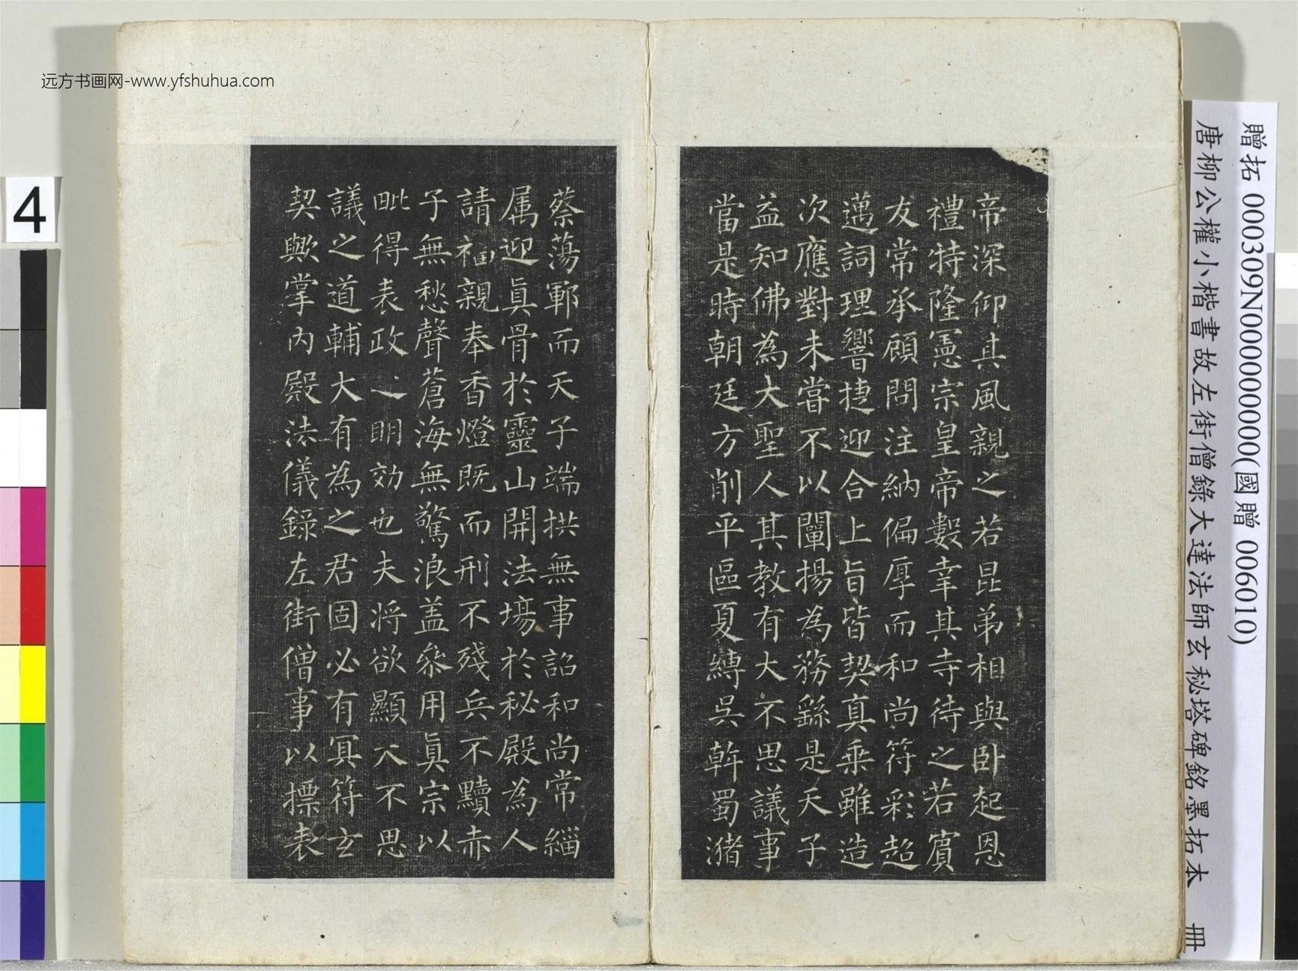 远方书画网-www.yfshuhua.com
贈拓 000309N000000000(國贈 006010)
唐柳公權小楷書故左街僧錄大達法師玄秘塔碑銘墨拓本 冊
帝深仰其風親之若昆弟相與卧起恩
禮特隆憲宗皇帝數幸其寺待之若賓
友常承顧問注納偏厚而和尚符彩超
邁詞理響捷迎合上旨皆契真乘雖造
次應對未嘗不以闡揚為務繇是天子
益知佛為大聖人其教有大不思議事
當是時朝廷方削平區夏縛吳斡蜀潴
蔡蕩鄆而天子端拱無事詔和尚常緇
属迎眞骨於靈山開法場於秘殿為人
請福親奉香燈既而刑不殘兵不黷赤
子無愁聲蒼海無驚浪盖叅用眞宗以
毗得表政之明効也夫将欲顯大不思
議之道輔大有為之君固必有冥符玄
契歟掌內殿法儀錄左街僧事以摽表
4